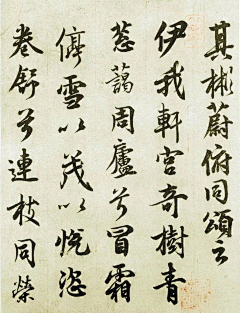 其彬蔚俯同頌云
伊我軒宮奇樹青
蔥藹周廬兮冒霜
停雪以茂以悅恣
卷舒兮連枝同榮